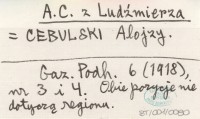 A.C. z Ludźmierza
= CEBULSKI Alojzy.
Gaz. Podh. 6 (1918),
nr 3 i 4. Obie pozycje nie
dotyczą regionu.